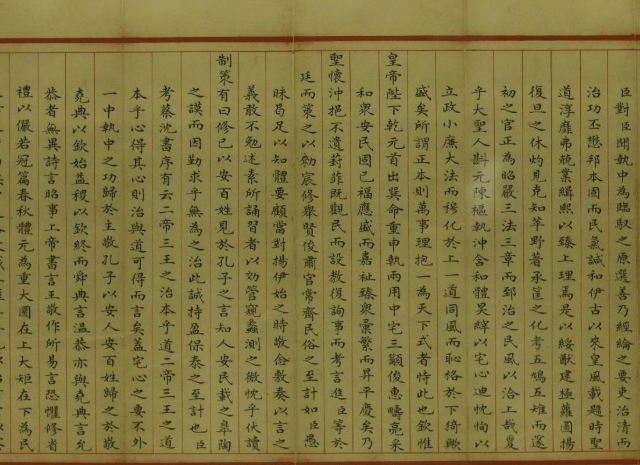 臣對臣聞執中為臨馭之原選善乃經綸之要治清而
治功丕懋邦本固而民氣誠和伊古以來皇風載題時聖
道淳龐弗競業緝熙以臻上理焉是以綏猷建極蘿圖揚
復旦之休灼見克知苹野著承筐之化考五鳩五雉而遂
初之官正為昭嚴三法三章而郅治之民風以洽上哉夐
乎大聖人斟元陳樞執沖含和體昊緯以宅心迪忱恂以
立政小廉大法而穆化於上一道同風而恥格於下猗歟
盛矣所謂正本則萬事理抱一為天下式者恃此也欽惟
皇帝陛下乾元首出巽命重申執兩用中宅三顯俊惠疇亮采
和衆安民國已福應盛而嘉祉臻衆彙繁而昇平慶矣乃
聖懷沖挹不遺葑菲既觀民而設教復詢事而考言進臣等於
廷而策之以勑宸修舉賢俊肅官常齊民俗之至計如臣愚
昧曷足以知體要顧當對揚伊始之時敬念敷奏以言之
義敢不勉述素所誦習者以効管窺蠡測之微忱乎伏讀
制策有曰修己以安百姓見於孔子之言知人安民載之皋陶
之謨而因勤求乎無為之治此誠持盈保泰之至計也臣
考蔡沈書序有云二帝三王之治本乎道二帝三王之道
本乎心得其心則治與道可得而言矣蓋宅心之要不外
一中執中之功歸於主敬孔子以安人安百姓歸之於敬
堯典以欽始益稷以欽終而舜典言溫恭亦與堯典言允
恭者無異詩言昭事上帝書言王敬作所易言恐懼修省
禮以儼若冠篇春秋體元為重大圜在上大矩在下為民